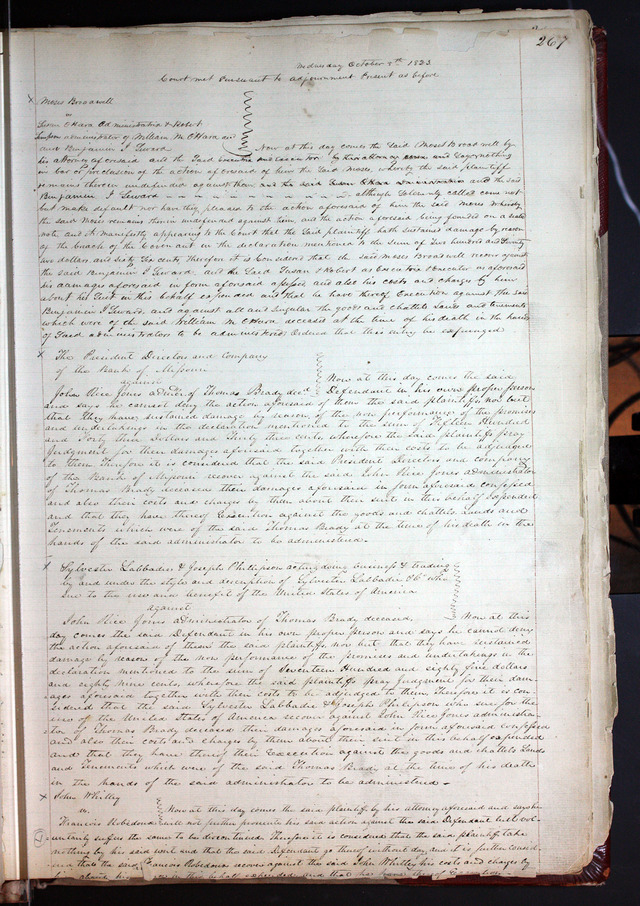 267
Wednesday October 8th 1823
Court met Pursuant to adjournment Present as before
x Moses Broadwell
vs
Susan OHara Administratrix & Robert
Simpson administrator of William M. OHara decd
and Benjamin J Seward Now at this day comes the Said Moses Broadwell by
his attorney aforesaid and the Said Executrix and Executor by their attorney come and Says nothing
in bar or preclusion of the action aforesaid of him the Said Moses, whereby the said plaintiff
remains therein undefended against them, and the said Susan OHara administratrix and the said
Benjamin J Seward - - - - - - - - - although Solemnly called come not
but make default nor have they plead to the action aforesaid of him the said Moses whereby
the said Moses remains therein undefended against them, and the action aforesaid being founded on a
note, and it manifestly appearing to the Court that the Said plaintiff hath sustained damage by reason
of the breach of the Covenant in the declaration mentioned to the sum of Two hundred and Twenty
two dollars and Sixty Six cents, Therefore it is Considered that the said Moses Broadwell recover against
the Said Benjamin J Seward and the Said Susan & Robert as Executrix & Executor as aforesaid
his damages aforesaid in form aforesaid assessed and also his costs and charges by him
about his Suit in this behalf expended and that he have thereof Execution against the Said
Benjamin J Seward, and against all and Singular the goods and chattels Lands and tenements
which were of the said William M. OHara deceased at the time of his death in the hands
of Said administrators to be administered Ordered that this entry be expunged
x The President Directors and Company
of the Bank of Missouri
against Now at this day comes the said
John Rice Jones admr of Thomas Brady decd Defendant in his own proper person
and says he cannot deny the action aforesaid of them the said plaintiffs, nor but
that they have sustained damage by reason of the non performance of the promises
and undertakings in the declaration mentioned to the sum of Fifteen Hundred
and Forty three Dollars and Thirty three cents, wherefore the said plaintiffs pray
Judgment for their damages aforesaid together with their costs to be adjudged
to them Therefore it is considered that the said President Directors and Company
of the Bank of Missouri recover against the said John Rice Jones administrator
of Thomas Brady deceased their damages aforesaid in form aforesaid confessed
and also their costs and charges by them about their suit in this behalf expended
and that they have thereof Execution against the goods and chattels Lands and
Tenements which were of the said Thomas Brady at the time of his death in the
hands of the said administrator to be administered.
x Sylvester Labbadie & Joseph Philipson acting doing business & trading
by and under the style and description of Sylvester Labbadie & Co who
sue to the use and benefit of the United States of America
against
John Rice Jones administrator of Thomas Brady deceased, Now at this
day comes the said Defendant in his own proper person and says he cannot deny
the action aforesaid of them the said plaintiffs nor but that they have sustained
damage by reason of the non performance of the promises and undertakings in the
declaration mentioned to the sum of Seventeen Hundred and eighty five dollars
and eighty nine cents, wherefore the said plaintiffs pray Judgment for their dam-
ages aforesaid together with their costs to be adjudged to them, Therefore it is con-
sidered that the said Sylvester Labbadie & Joseph Philipson who sue for the
use of the United States of America recover against John Rice Jones administra-
tor of Thomas Brady deceased their damages aforesaid in form aforesaid confessed
and also their costs and charges by them about their suit in this behalf expended
and that they have thereof their Execution against the goods and chattels Lands
and Tenements which were of the said Thomas Brady at the time of his death
in the hands of the said administrator to be administered -
x John Whitley
vs Now at this day comes the said plaintiff by his attorney aforesaid and says he
Francois Robedoux will not further prosecute his said action against the said Defendant but vol-
untarily suffers the same to be discontinued Therefore it is considered that the said plaintiff take
nothing by his said writ and that the said Defendant go thereof without day, and it is further consid.
and that the said Francois Robedoux recover against the said John Whitley his costs and charges by
him about his suit in this behalf expended and that he have thereof Execution